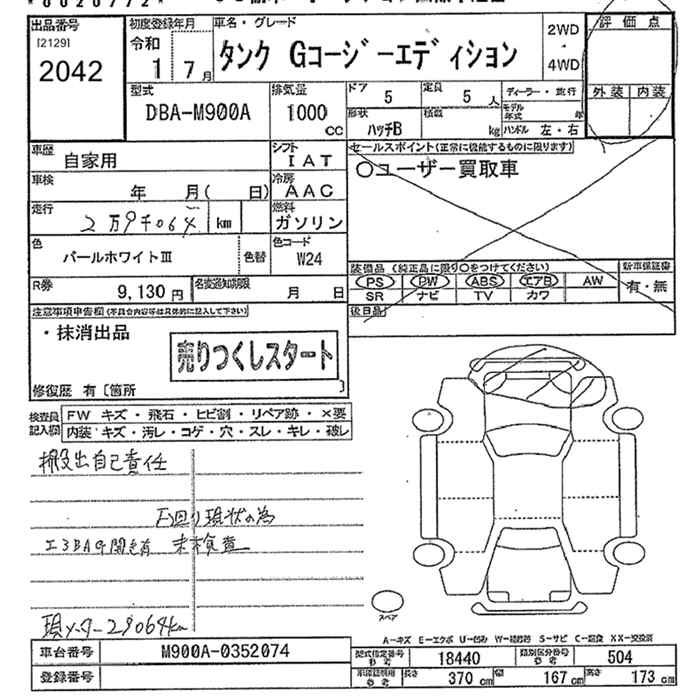 *0020772*
出品番号
[2129]
2042
初度登録年月
令和
1 7月
車名・グレード
タンク Gコージーエディション
2WD
・
4WD
評価点
外装 内装
型式
DBA-M900A
排気量
1000
cc
ドア
5
定員
5 人
形状
ハッチB
積載
kg
ディーラー・並行
モデル年式 年
ハンドル 左・右
車歴
自家用
シフト
IAT
車検
年 月( 日)
冷房
AAC
走行
2万9千064 km
燃料
ガソリン
色
パールホワイトⅢ
色替
色コード
W24
R券
9,130円
名変通知期限
月 日
セールスポイント(正常に機能するものに限ります)
○ユーザー買取車
装備品(純正品に限り○をつけてください)
PS PW ABS エアB AW
SR ナビ TV カワ
新車保証書
有・無
後日品
注意事項申告欄(不具合内容等は具体的に記入して下さい)
・抹消出品
売りつくしスタート
修復歴 有〔箇所 〕
検査員記入欄
FW キズ・飛石・ヒビ割・リペア跡・×要
内装 キズ・汚レ・コゲ・穴・スレ・キレ・破レ
搬出自己責任
下回り現状の為
エアBAG開き有 未検査
現メーター29064km
スペア
A-キズ E-エクボ U-凹み W-補修跡 S-サビ C-腐食 XX-交換済
車台番号
M900A-0352074
登録番号
型式指定番号 参考
18440
類別区分番号 参考
504
長さ
370 cm
幅
167 cm
高さ
173 cm